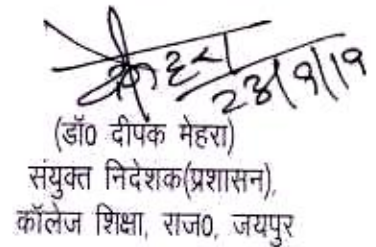 (डॉ0 दीपक मेहरा)
संयुक्त निदेशक(प्रशासन),
कॉलेज शिक्षा, राज0, जयपुर